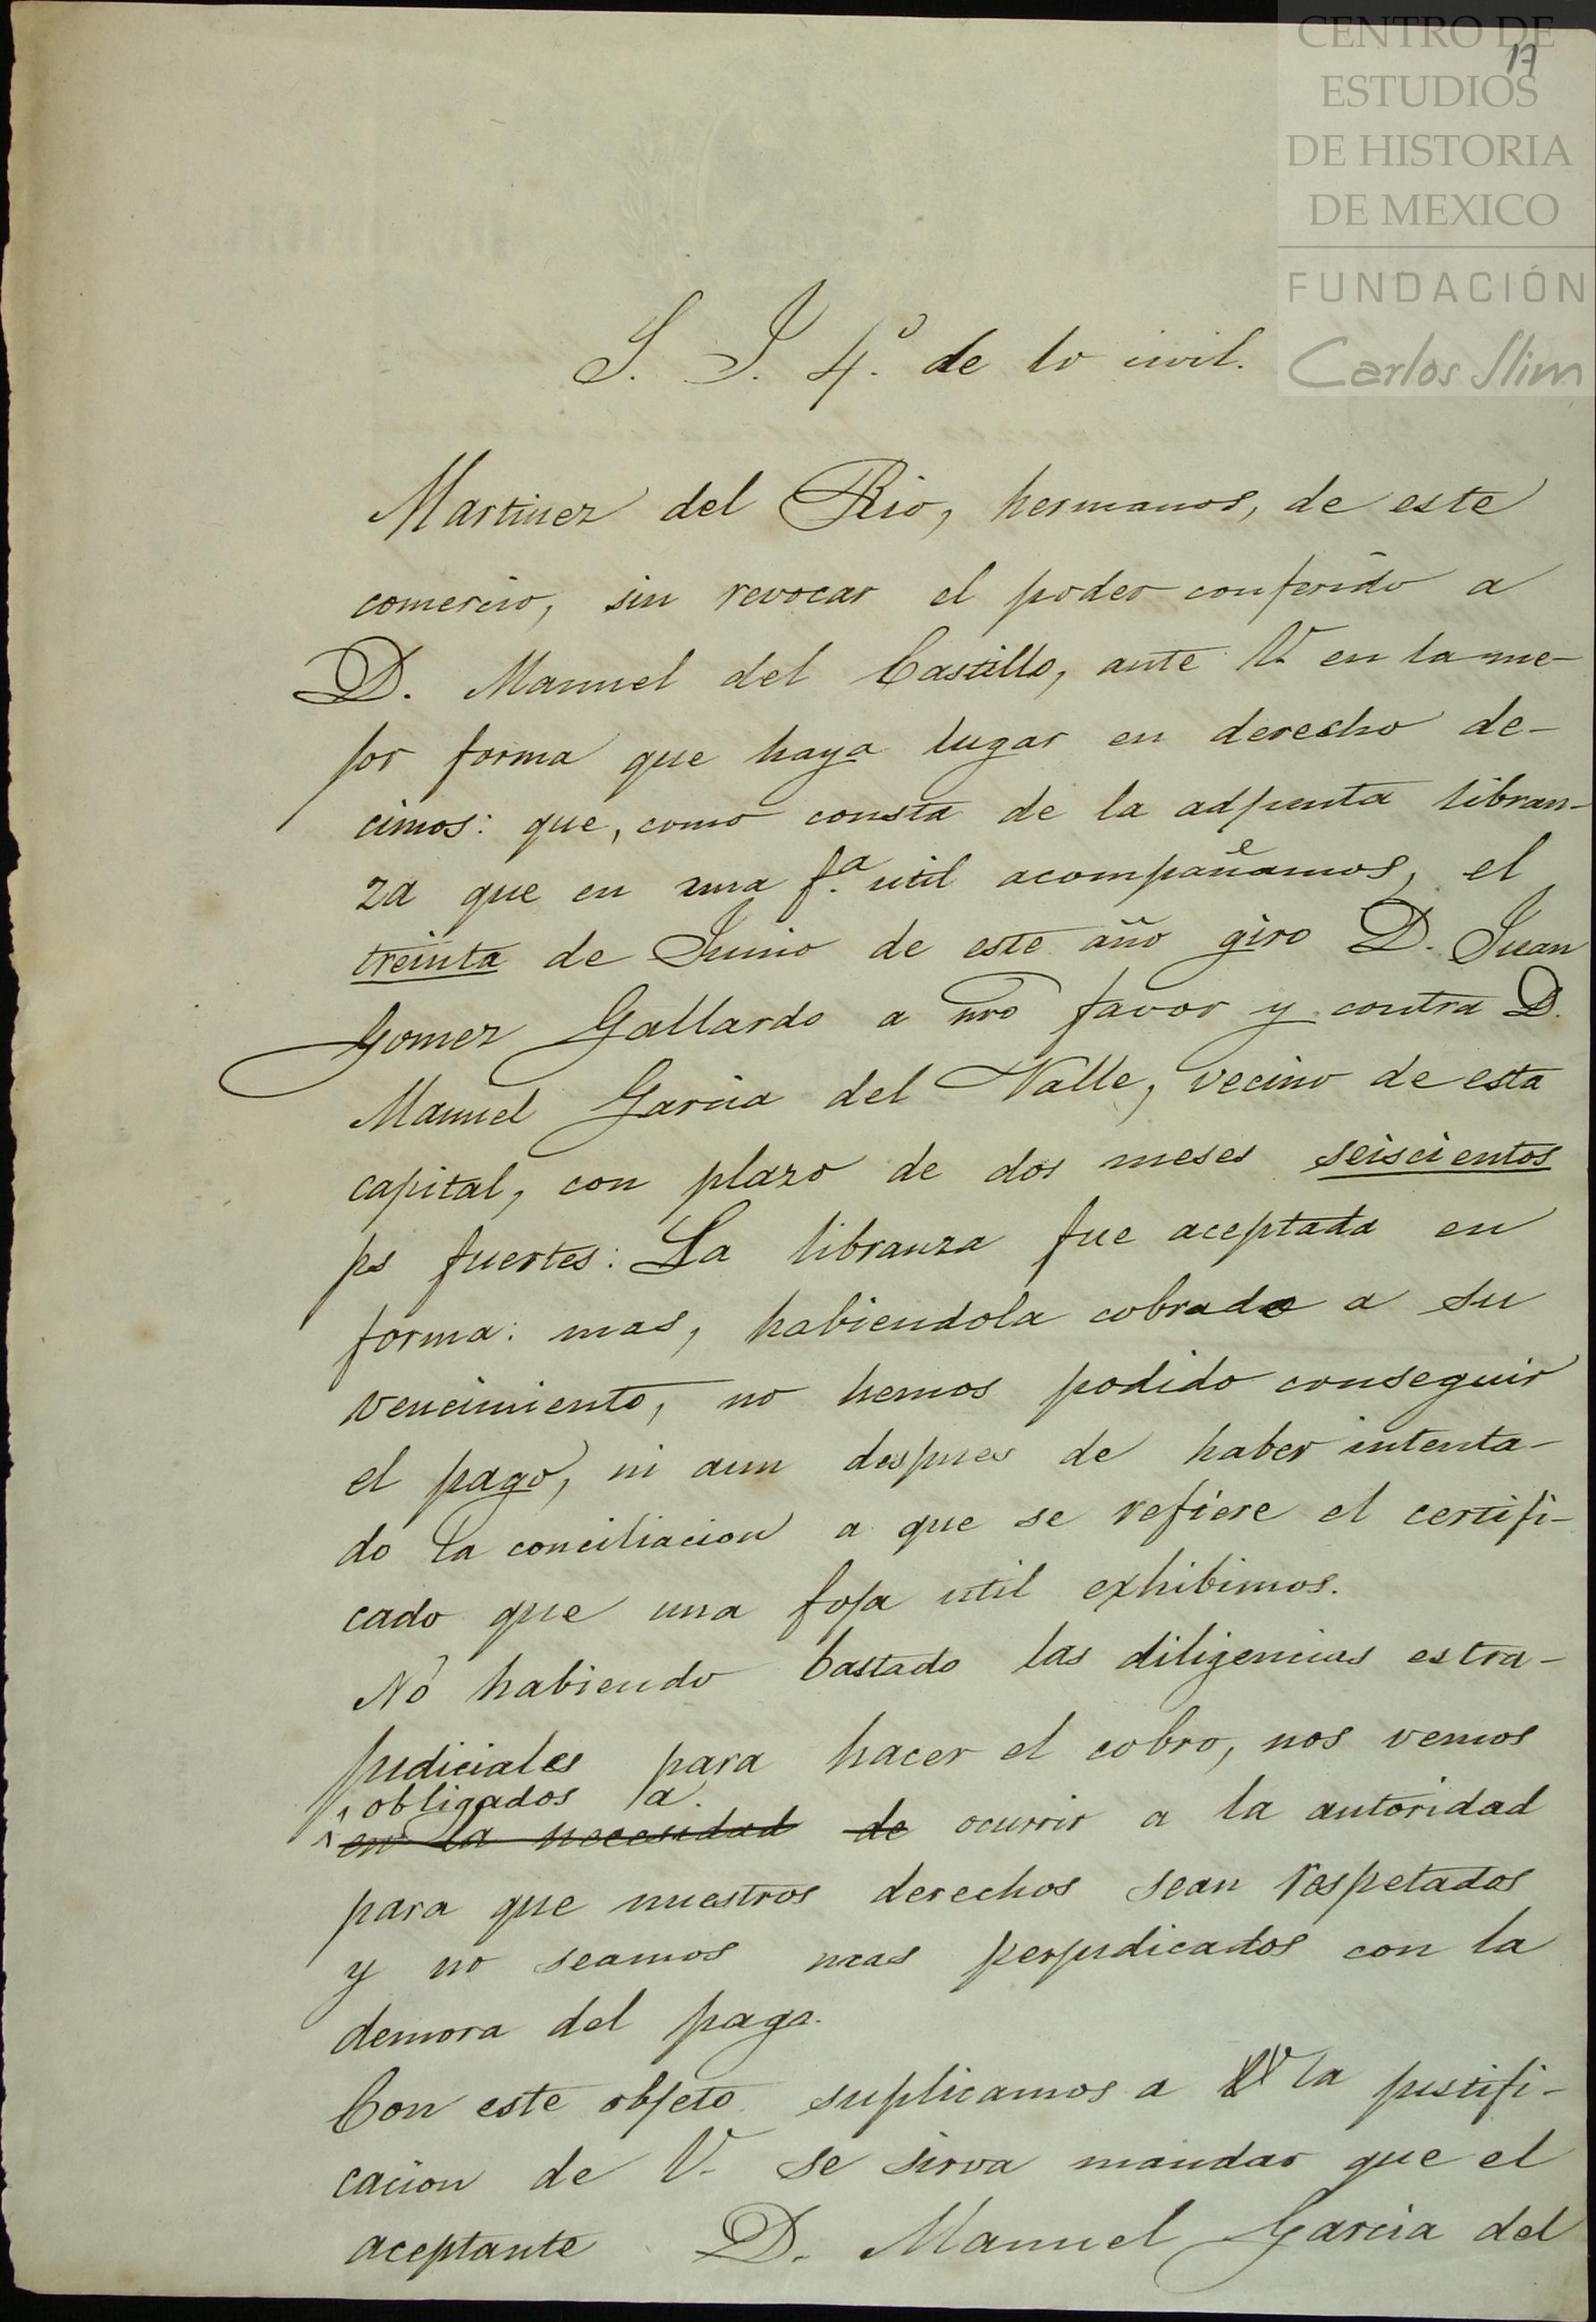 CENTRO DE
17
ESTUDIOS
DE HISTORIA
DE MEXICO
FUNDACIÓN
Carlos Slim
S. J. 4.º de lo civil.
Martinez del Rio, hermanos, de este
comercio, sin revocar el poder conferido a
D. Manuel del Castillo, ante V. en la me-
jor forma que haya lugar en derecho de-
cimos: que, como consta de la adjunta libran-
za que en una f.ª util acompañamos, el
treinta de Junio de este año giro D. Juan
Gomez Gallardo a nro favor y contra D.
Manuel Garcia del Valle, vecino de esta
capital, con plazo de dos meses seiscientos
ps fuertes: La libranza fue aceptada en
forma: mas, habiendola cobrado a su
vencimiento, no hemos podido conseguir
el pago, ni aun despues de haber intenta-
do la conciliacion a que se refiere el certifi-
cado que una foja util exhibimos.
No habiendo bastado las diligencias estra-
judiciales para hacer el cobro, nos vemos
obligados a
en la necesidad de ocurrir a la autoridad
para que nuestros derechos sean respetados
y no seamos mas perjudicados con la
demora del pago.
Con este objeto suplicamos a la justifi-
cacion de V. se sirva mandar que el
aceptante D. Manuel Garcia del